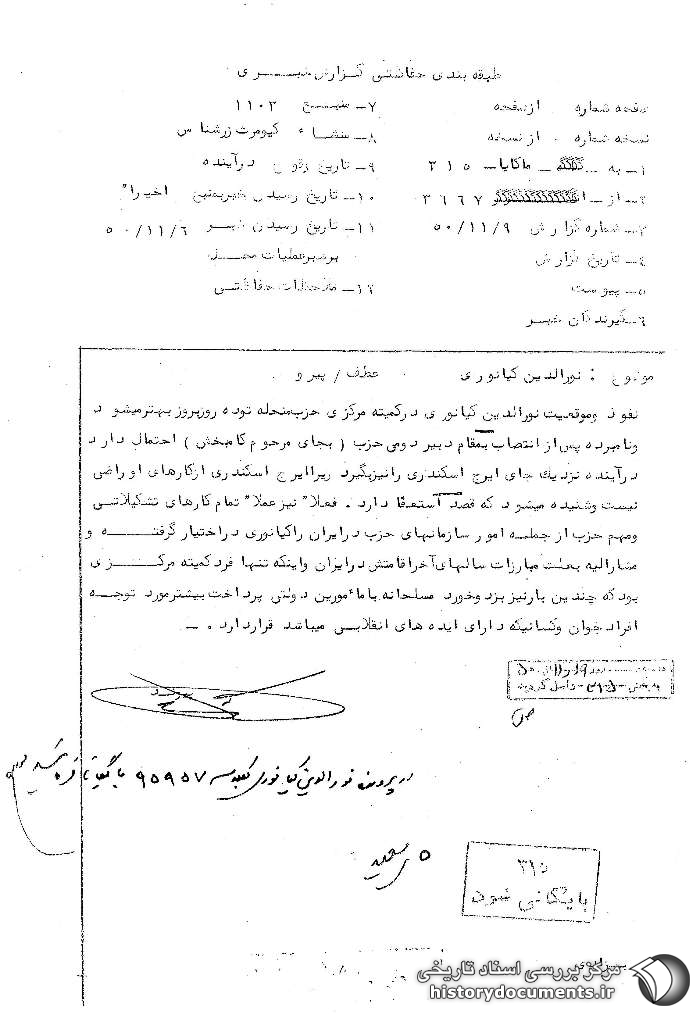 طبقه بندی حفاظتی گزارش خبری
صفحه شماره از صفحه
نسخه شماره از نسخه
۱- به ۳۱۵
۲- از ۳۶۶۷
۳- شماره گزارش ۵۰/۱۱/۹
۴- تاریخ گزارش
۵- پیوست
۶- گیرندگان خبر
۷- منبع ۱۱۰۳
۸- منشاء کیومرث زرشناس
۹- تاریخ وقوع درآینده
۱۰- تاریخ رسیدن خبر بمنبع اخیرا"
۱۱- تاریخ رسیدن خبر ۵۰/۱۱/۶
برهبر عملیات محل
۱۲- ملاحظات حفاظتی
موضوع : نورالدین کیانوری عطف / پیرو
نفوذ وموقعیت نورالدین کیانوری درکمیته مرکزی حزب منحله توده روزبروز بهترمیشود
ونامبرده پس از انتصاب بمقام دبیر دومی حزب ( بجای مرحوم کامبخش ) احتمال دارد
درآینده نزدیك جای ایرج اسکندری رانیزبگیرد زیراایرج اسکندری ازکارهای او راضی
نیست وشنیده میشود که قصد استعفا دارد . فعلا" نیز عملا" تمام کارهای تشکیلاتی
ومهم حزب از جمله امور سازمانهای حزب درایران راکیانوری دراختیار گرفته و
مشارالیه بعلت مبارزات سالهای آخراقامتش درایران واینکه تنها فرد کمیته مرکزی
بود که چندین بارنیز بزد وخورد مسلحانه بامأمورین دولتی پرداخت بیشترمورد توجه
افراد جوان وکسانیکه دارای ایده های انقلابی میباشد قراردارد . -
در پرونده نورالدین کیانوری بکلاسه ۹۵۹۵۷ بایگانی
۳۱۵
بایگانی شود
مرکز بررسی اسناد تاریخی
historydocuments.ir